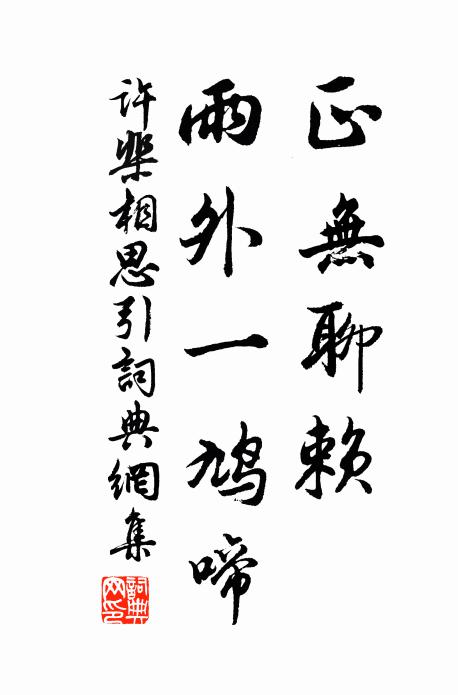 正無聊賴
雨外一鳩啼
許棐相思引詞典網集
詞典网印